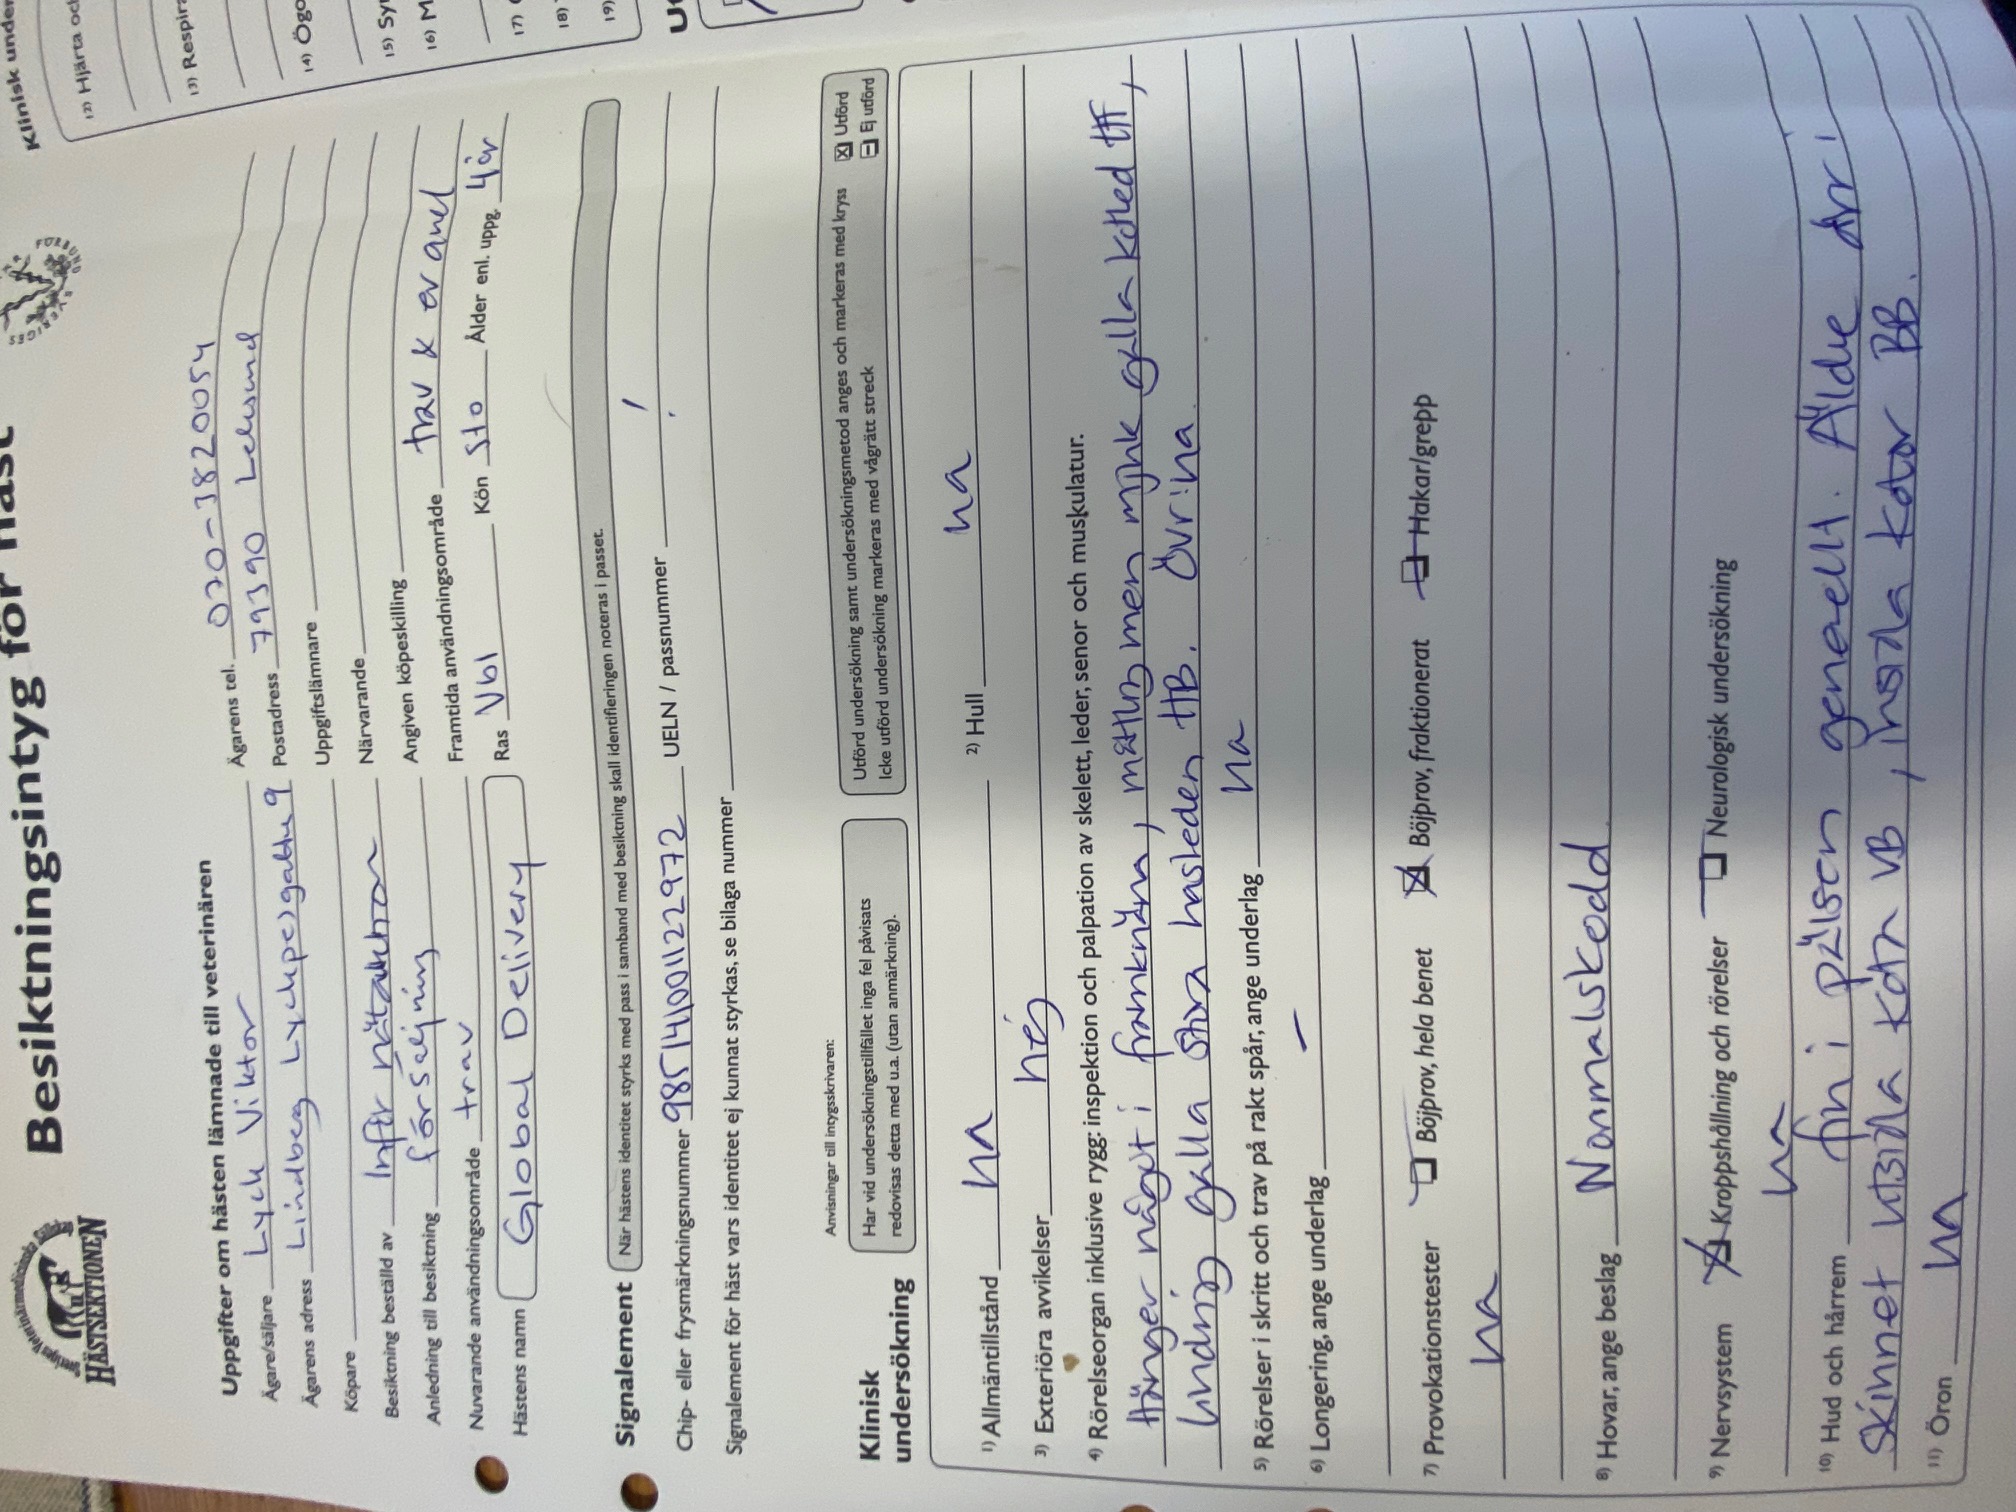 Besiktningsintyg för häst
HÄSTSEKTIONEN
SVERIGES
Uppgifter om hästen lämnade till veterinären
Ägare/säljare Lych Viktor Ägarens tel. 070-3820054
Ägarens adress Lindberg 9 Postadress 79390 Leksand
Köpare Uppgiftslämnare
Besiktning beställd av Inför Närvarande
Anledning till besiktning försäljning Angiven köpeskilling
Nuvarande användningsområde trav Framtida användningsområde trav & ev avel
Hästens namn Global Delivery Ras Vbl Kön Sto Ålder enl. uppg. 4 år
Signalement När hästens identitet styrks med pass i samband med besiktning skall identifieringen noteras i passet.
Chip- eller frysmärkningsnummer 985141001122972 UELN / passnummer
Signalement för häst vars identitet ej kunnat styrkas, se bilaga nummer
Anvisningar till intygsskrivaren:
Klinisk undersökning
Har vid undersökningstillfället inga fel påvisats
redovisas detta med u.a. (utan anmärkning).
Utförd undersökning samt undersökningsmetod anges och markeras med kryss
Icke utförd undersökning markeras med vågrätt streck
Utförd
Ej utförd
1) Allmäntillstånd ua 2) Hull ua
3) Exteriöra avvikelser nej
4) Rörelseorgan inklusive rygg: inspektion och palpation av skelett, leder, senor och muskulatur.
Hänger något i framknäna, måttlig men mjuk galla kotled HF,
lindrig galla stora hasleden HB. Övr: ua.
5) Rörelser i skritt och trav på rakt spår, ange underlag ua
6) Longering, ange underlag –
7) Provokationstester Böjprov, hela benet Böjprov, fraktionerat Hakar/grepp
ua
8) Hovar, ange beslag Normalskodd
9) Nervsystem Kroppshållning och rörelser Neurologisk undersökning
ua
10) Hud och hårrem fin i pälsen generellt. Äldre ärr i
skinnet utsida kota VB, insida kotor BB.
11) Öron ua
Klinisk under
12) Hjärta oc
13) Respira
14) Ögo
15) Sy
16) M
17)
18)
19)